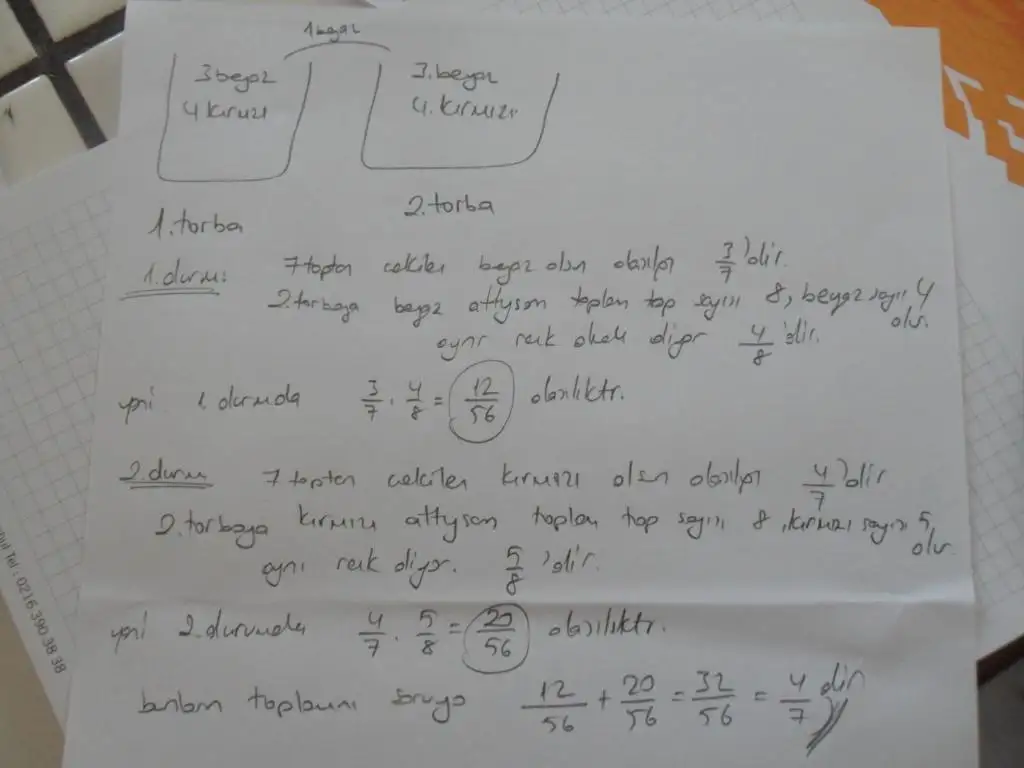 1 beyaz
3 beyaz
4 kırmızı
3. beyaz
4. kırmızı
1. torba
2. torba
1. durum: 7 toptan çekilen beyaz olsun olasılığı 3/7'dir.
2. torbaya beyaz attıysam toplam top sayısı 8, beyaz sayısı 4 olur.
aynı renk olmalı diyor 4/8'dir.
yani 1. durumda 3/7 . 4/8 = 12/56 olasılıktır.
2. durum 7 toptan çekilen kırmızı olsun olasılığı 4/7'dir
2. torbaya kırmızı attıysam toplam top sayısı 8, kırmızı sayısı 5 olur.
aynı renk diyor. 5/8'dir.
yani 2. durumda 4/7 . 5/8 = 20/56 olasılıktır.
bunların toplamını soruyor 12/56 + 20/56 = 32/56 = 4/7 dir
Tel : 0216 390 38 38